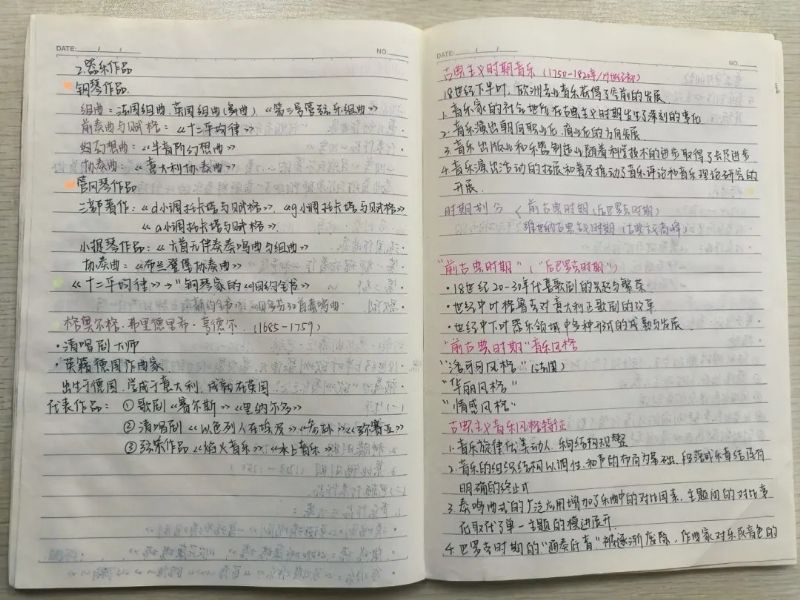 DATE: / /
NO
2.器乐作品
钢琴作品
组曲：法国组曲、英国组曲(易曲) 《第三号管弦乐组曲》
前奏曲与赋格：《十二平均律》
组幻想曲：《半音阶幻想曲》
协奏曲：《意大利协奏曲》
管风琴作品
二部著作：《d小调托卡塔与赋格》、《g小调托卡塔与赋格》
《a小调托卡塔与赋格》
小提琴作品：《六首无伴奏奏鸣曲与组曲》
协奏曲：《布兰登堡协奏曲》
《十二平均律》→"钢琴家的《旧约全书》
格奥尔格·弗里德里希·亨德尔 (1685-1759)
·清唱剧大师
·英籍德国作曲家
出生于德国，学成于意大利，成就在英国
代表作品：①歌剧《赛尔斯》《里纳尔多》
②清唱剧《以色列人在埃及》《参孙》《弥赛亚》
③弦乐作品《焰火音乐》《水上音乐》
DATE: / /
NO.
古典主义时期音乐 (1750-1820年/
18世纪下半叶，欧洲专业音乐获得了空前的发展
1.音乐家的社会地位在古典主义时期发生了深刻的变化
2.音乐演出朝向职业化、商业化的方向发展
3.音乐出版业和乐器制造业随着科学技术的进步取得了长足进步
4.音乐演出活动的拓展和普及推动了音乐评论和音乐理论研究的
开展.
时期划分 < 前古典时期(后巴罗克时期)
维也纳古典主义时期(古典主义高峰)
"前古典时期"("后巴罗克时期")
·18世纪20-30年代喜歌剧的兴起与繁荣
·世纪中叶格鲁克对意大利正歌剧的改革
·世纪中下叶器乐领域中各种形式的成熟与发展
"前古典时期"音乐风格
"洛可可风格"(法国)
"华丽风格"
"情感风格"
古典主义音乐风格特征
1.音乐旋律优美动人，结构规整
2.音乐的组织结构以调性、和声的布局为基础，段落外乐音结造有
明确的终止式
3.奏鸣曲式的广泛应用增加了乐曲中的对比因素，主题间的对比素
在取代了单一主题的模进展开.
4.巴罗克时期的"通奏低音"被逐渐废除，作曲家对乐队音色的